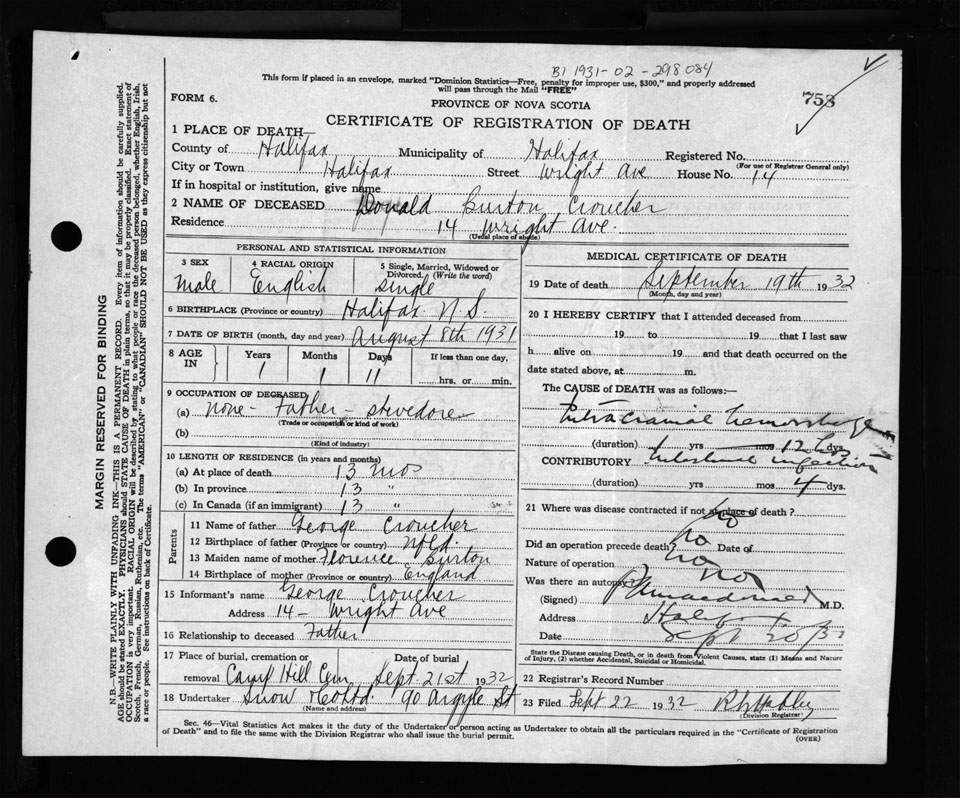 B1 1931-02-298084
This form if placed in an envelope, marked "Dominion Statistics—Free, penalty for improper use, $300," and properly addressed
will pass through the Mail "FREE"
758
FORM 6.
PROVINCE OF NOVA SCOTIA
CERTIFICATE OF REGISTRATION OF DEATH
1 PLACE OF DEATH—
County of Halifax Municipality of Halifax Registered No.
(For use of Registrar General only)
City or Town Halifax Street Wright Ave House No. 14
If in hospital or institution, give name
2 NAME OF DECEASED Donald Burton Croucher
Residence 14 Wright Ave.
(Usual place of abode)
PERSONAL AND STATISTICAL INFORMATION
3 SEX Male
4 RACIAL ORIGIN English
5 Single, Married, Widowed or
Divorced. (Write the word)
single
6 BIRTHPLACE (Province or country) Halifax N.S.
7 DATE OF BIRTH (month, day and year) August 8th 1931
8 AGE IN
Years Months Days If less than one day,
1 1 11 hrs. or min.
9 OCCUPATION OF DECEASED
(a) None - Father - stevedore
(Trade or occupation or kind of work)
(b)
(Kind of industry)
10 LENGTH OF RESIDENCE (in years and months)
(a) At place of death 13 mos
(b) In province 13 "
(c) In Canada (if an immigrant) 13 "
Parents
11 Name of father George Croucher
12 Birthplace of father (Province or country) Nfld.
13 Maiden name of mother Florence Burton
14 Birthplace of mother (Province or country) England
15 Informant's name George Croucher
Address 14 - Wright Ave
16 Relationship to deceased Father
17 Place of burial, cremation or Date of burial
removal Camp Hill Cem Sept. 21st 1932
18 Undertaker Snow & Co Ltd 90 Argyle St
(Name and address)
MEDICAL CERTIFICATE OF DEATH
19 Date of death September 19th 1932
(Month, day and year)
20 I HEREBY CERTIFY that I attended deceased from
19 to 19 that I last saw
h alive on 19 and that death occurred on
date stated above, at m.
The CAUSE of DEATH was as follows:—
Intracranial hemorrhage
(duration) yrs mos 12 hrs dys
CONTRIBUTORY Intestinal infection
(duration) yrs mos 4 dys.
21 Where was disease contracted if not at place of death? no
Did an operation precede death? no Date of
Nature of operation no
Was there an autopsy? no
(Signed) M.D.
Address Halifax
Date Sept 20/32
State the Disease causing Death, or in death from Violent Causes, state (1) Means and Nature
of Injury, (2) whether Accidental, Suicidal or Homicidal.
22 Registrar's Record Number
23 Filed Sept 22 1932
(Division Registrar)
Sec. 46—Vital Statistics Act makes it the duty of the Undertaker or person acting as Undertaker to obtain all the particulars required in the "Certificate of Registration
of Death" and to file the same with the Division Registrar who shall issue the burial permit.
(OVER)
MARGIN RESERVED FOR BINDING
N.B.—WRITE PLAINLY WITH UNFADING INK—THIS IS A PERMANENT RECORD. Every item of information should be carefully supplied.
AGE should be stated EXACTLY. PHYSICIANS should STATE CAUSE OF DEATH in plain terms, so that it may be properly classified. Exact statement of
OCCUPATION is very important. RACIAL ORIGIN will be described by stating to what people or race the deceased person belonged, whether English, Irish,
Scotch, French, German, Russian, Ruthenian, etc. The terms "AMERICAN" or "CANADIAN" SHOULD NOT BE USED as they express citizenship but not
a race or people. See instructions on back of Certificate.